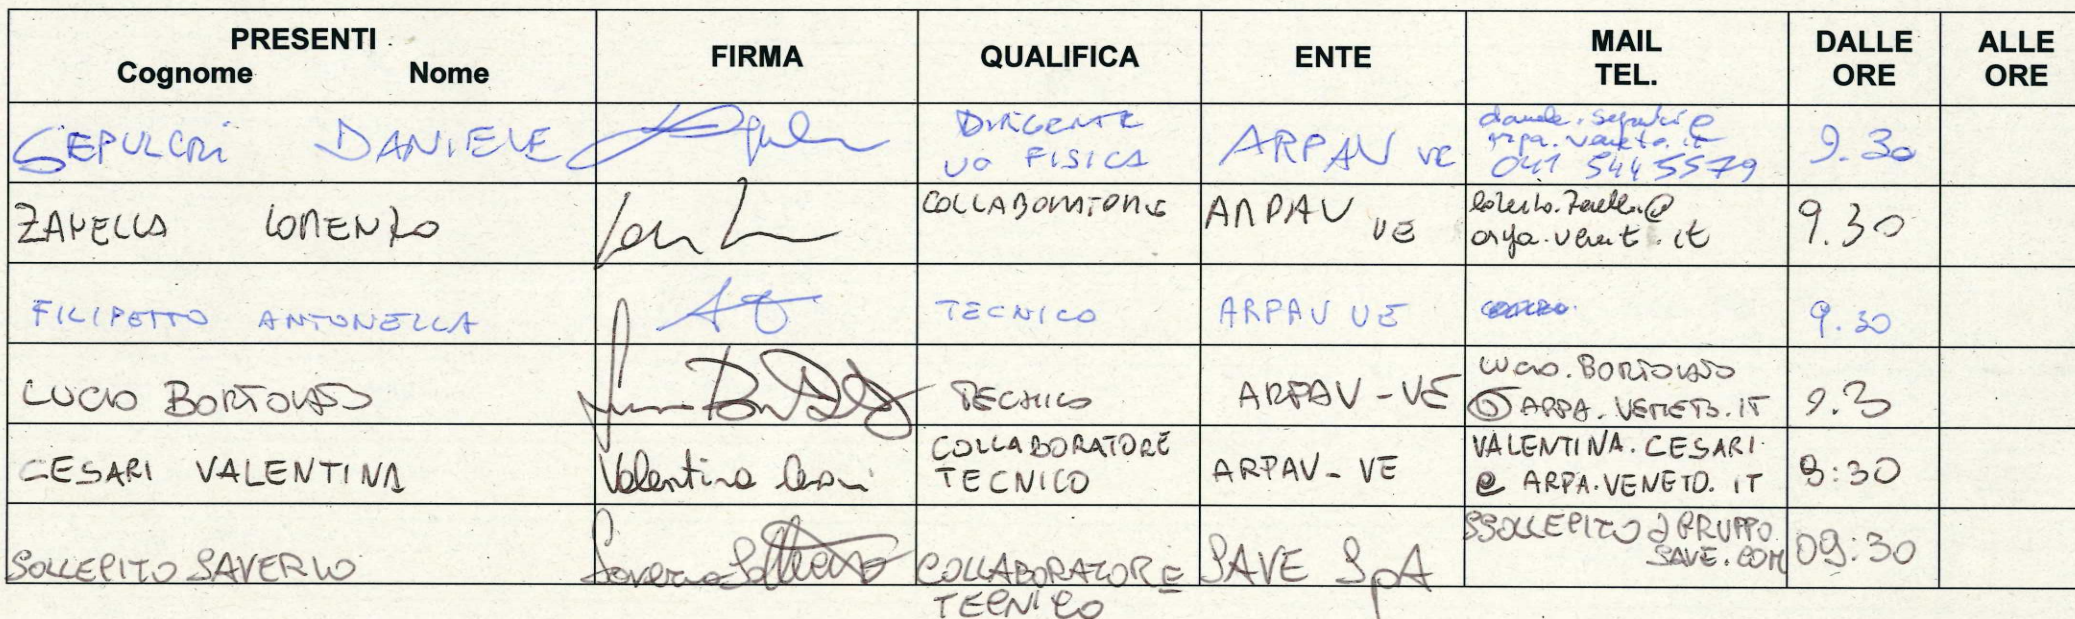 PRESENTI
Cognome Nome
FIRMA
QUALIFICA
ENTE
MAIL
TEL.
DALLE
ORE
ALLE
ORE
SEPULCRI DANIELE
DIRIGENTE
UO FISICA
ARPAV VE
daniele.sepulcri@
arpa.veneto.it
041 5445579
9.30
ZANELLA LORENZO
COLLABORATORE
ARPAV VE
lorenzo.zanella@
arpa.veneto.it
9.30
FILIPETTO ANTONELLA
TECNICO
ARPAV VE
9.30
LUCIO BORTOLATO
TECNICO
ARPAV - VE
LUCIO.BORTOLATO
@ARPA.VENETO.IT
9.3
CESARI VALENTINA
Valentina Cesari
COLLABORATORE
TECNICO
ARPAV - VE
VALENTINA.CESARI
@ ARPA.VENETO.IT
9:30
SOLLEPITO SAVERIO
Saverio Sollepito
COLLABORATORE
TECNICO
SAVE SpA
SSOLLEPITO @ GRUPPO
SAVE.COM
09:30